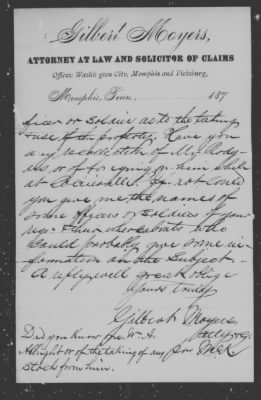 Gilbert Moyers,
ATTORNEY AT LAW AND SOLICITOR OF CLAIMS
Offices: Washington City, Memphis and Vicksburg,
Memphis, Tenn., 187
ficer or Soldier as to the taking
& use of the property. Have you
any recollection of Mr.
or of foraging on him while
at If not could
you give me the names of
some officers or Soldiers of your
regt & their whereabouts who
could probably give some in-
formation on the Subject.
A reply will greatly oblige
Yours truly
Gilbert Moyers
Atty for
Did you know Wm. A.
Allright or of the taking of any
stock from him.